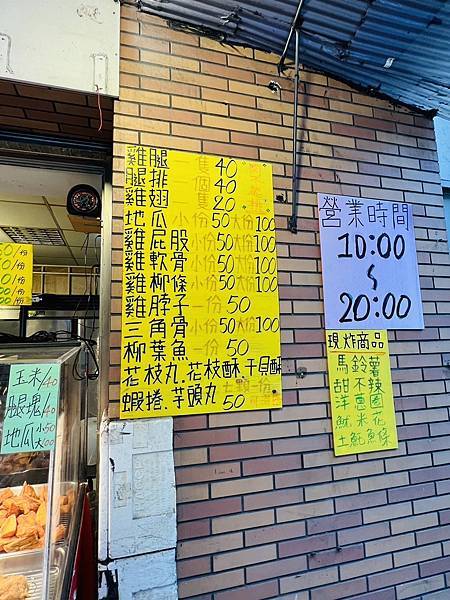 雞腿 一隻 40
腿排 一個 40
雞翅 一隻 20
地瓜 小份 50 大份 100
雞屁股 小份 50 大份 100
雞軟骨 小份 50 大份 100
雞柳條 小份 50 大份 100
雞脖子 一份 50
三角骨 小份 50 大份 100
柳葉魚 一份 50
花枝丸.花枝酥.干貝酥
蝦捲.芋頭丸 50
營業時間
10:00
~
20:00
現炸商品
馬鈴薯
甜不辣
洋蔥圈
魷米花
土魠魚條
玉米/40
腿塊/40
地瓜 小50 大100